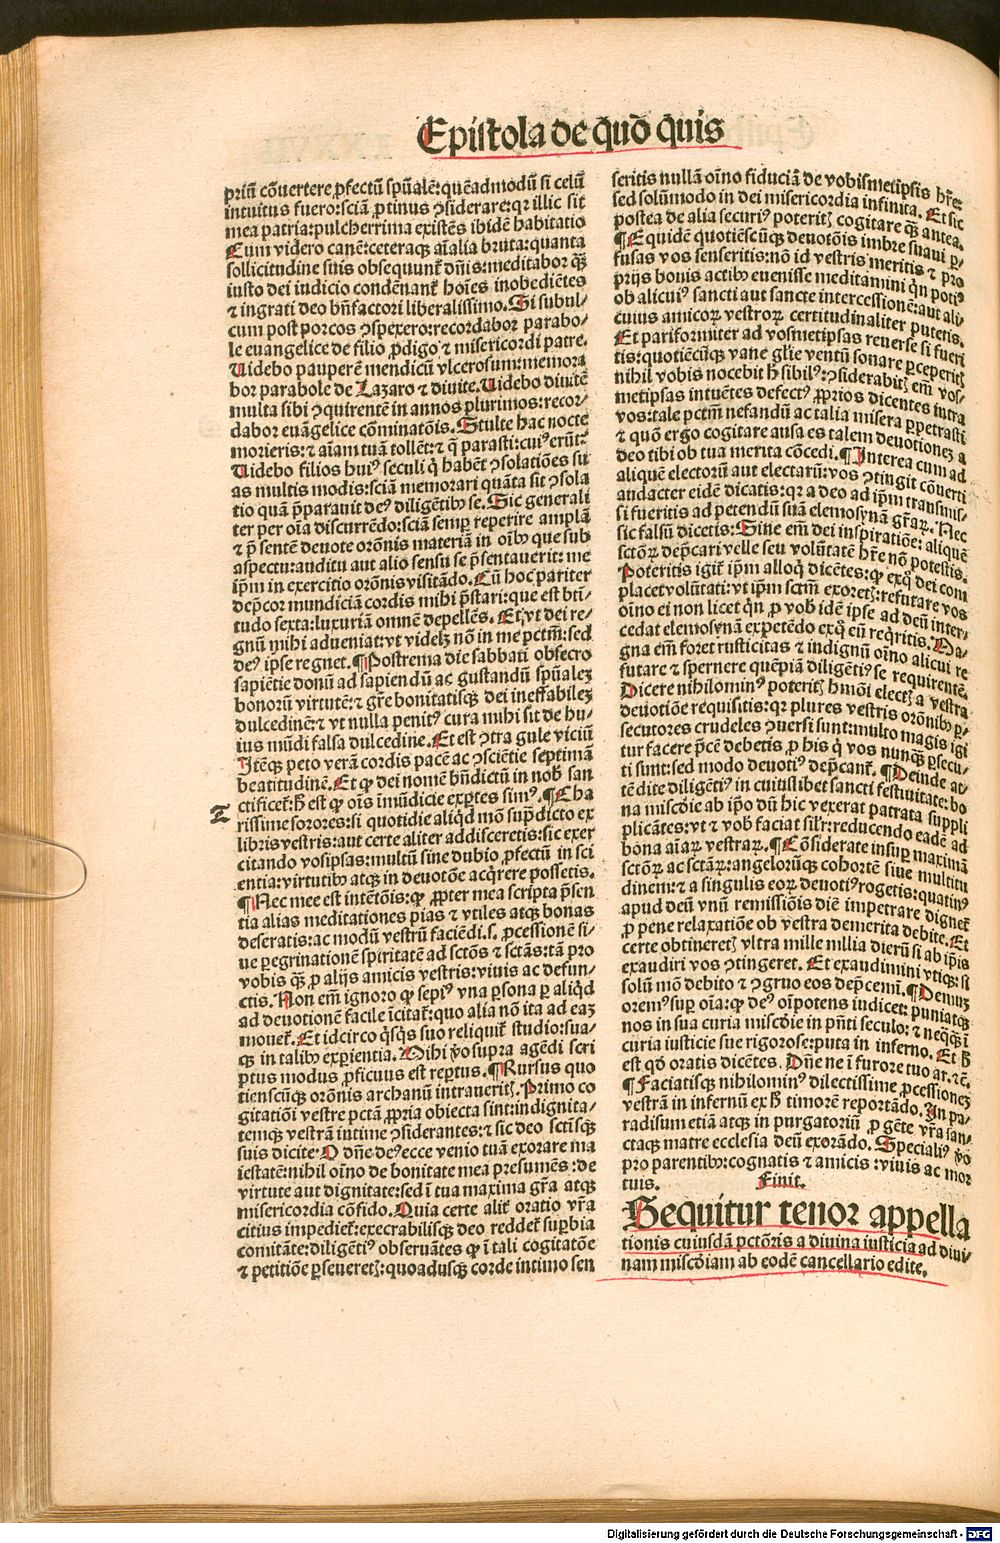 Epistola de q̄uō q̄uis
priū cōuertere ꝓfectū spūalē: quēadmodū si celū
intuitus fuero: sciā ꝓtinus ꝯsiderare: qꝛ illic sit
mea patria: pulcherrima existēs ibidē habitatio
Cum videro canē: ceteraqꝫ aīalia bruta: quanta
sollicitudine suis obsequunt᷑ dn̄is: meditabor qꝫ̄
iusto dei iudicio condēnant᷑ hoīes inobediētes
⁊ ingrati deo bn̄factori liberalissimo. Si subul/
cum post porcos ꝯspexero: recordabor parabo/
le euangelice de filio ꝓdigo ⁊ misericordi patre.
Uidebo pauperē mendicū vlcerosum: memora
bor parabole de Lazaro ⁊ diuite. Uidebo diuitē
multa sibi ꝯquirentē in annos plurimos: recor/
dabor euāgelice cōminatōis. Stulte hac nocte
morieris: ⁊ aīam tuā tollēt: ⁊ q̄ parasti: cuiꝰ erūt:
Uidebo filios huiꝰ seculi q̇ habēt ꝯsolatiōes su
as multis modis: sciā memorari quāta sit ꝯsola
tio quā p̄parauit deꝰ diligētibꝫ se. Sic generali
ter per oīa discurrēdo: sciā semꝑ reperire amplā
⁊ p̄ sentē deuote orōnis materiā in oībꝫ que sub
aspectu: auditu aut alio sensu se p̄sentauerit: me
ip̄m in exercitio orōnis visitādo. Cū hoc pariter
dep̄cor mundiciā cordis mihi p̄stari: que est bti/
tudo sexta: luxuriā omnē depellēs. Et vt dei re/
gnū mihi adueniat: vt videlꝫ nō in me pctm̄: sed
deꝰ ipse regnet. ¶Postrema die sabbati obsecro
sapiētie donū ad sapiendū ac gustandū spūalez
bonorū virtutē: ⁊ gr̄e bonitatisqꝫ dei ineffabilez
dulcedinē: ⁊ vt nulla penitꝰ cura mihi sit de hu/
ius mūdi falsa dulcedine. Et est ꝯtra gule viciū
Itēqꝫ peto verā cordis pacē ac ꝯsciētie septimā
beatitudinē. Et ꝙ dei nomē bn̄dictū in nob̄ san
ctificet᷑: h̄ est ꝙ oīs imūdicie exꝑtes simꝰ. ¶Cha
rissime sorores: si quotidie aliqd̄ mō sup̄dicto ex
libris vestris: aut certe aliter addisceretis: sic exer
citando vosipsas: multū sine dubio ꝓfectū in sci
entia: virtutibꝫ atqꝫ in deuotōe acq̇rere possetis.
¶Nec mee est intētōis: ꝙ ꝓpter mea scripta p̄sen
tia alias meditationes pias ⁊ vtiles atqꝫ bonas
deseratis: ac modū vestrū faciēdi .s. ꝓcessionē si/
ue ꝑegrinationē spiritatē ad sctōs ⁊ sctās: tā pro
vobis qꝫ̄ ꝓ alijs amicis vestris: viuis ac defun/
ctis. Non em̄ ignoro ꝙ sepiꝰ vna ꝑsona ꝑ aliqd̄
ad deuotionē facile īcitat᷑: quo alia nō ita ad eaz
mouet᷑. Et idcirco q̇sqꝫ suo reliquit᷑ studio: sua/
qꝫ in talibꝫ exꝑientia. Mihi ꝟo supra agēdi scri
ptus modus ꝓficuus est reꝑtus. ¶Rursus quo
tienscūqꝫ orōnis archanū intraueritꝭ. Primo co
gitatiōi vestre pctā ꝓpria obiecta sint: indignita/
temqꝫ vestrā intime ꝯsiderantes: ⁊ sic deo sctisqꝫ
suis dicite. O dn̄e deꝰ ecce venio tuā exorare ma
iestatē: nihil oīno de bonitate mea presumēs: de
virtute aut dignitate: sed ī tua maxima gr̄a atqꝫ
misericordia cōfido. Quia certe alit᷑ oratio vr̄a
citius impediet᷑: execrabilisqꝫ deo reddet᷑ suꝑbia
comitāte: diligētiꝰ obseruātes ꝙ ī tali cogitatōe
⁊ petitiōe ꝑseueretꝭ: quoadusqꝫ corde intimo sen
seritis nullā oīno fiduciā de vobismetipsis hr̄e:
sed solūmodo in dei misericordia infinita. Et sic
postea de alia securiꝰ poteritꝭ cogitare qꝫ̄ antea.
¶Equidē quotiēscūqꝫ deuotōis imbre suaui ꝑ/
fusas vos senseritis: nō id vestris meritis ⁊ pro
prijs bonis actibꝫ euenisse meditamini qͥn potiꝰ
ob alicuiꝰ sancti aut sancte intercessionē: aut ali/
cuius amicoꝝ vestroꝝ certitudinaliter putetis.
Et pariformiter ad vosmetipsas reuerse si fueri
tis: quotiēcūqꝫ vane gl̄ie ventū sonare ꝑceperitꝭ
nihil vobis nocebit h̄ sibilꝰ: ꝯsiderabitꝭ em̄ vos/
metipsas intuētes defectꝰ ꝓprios dicentes intra
vos: tale pctm̄ nefandū ac talia misera ꝑpetrasti
⁊ quō ergo cogitare ausa es talem deuotionez a
deo tibi ob tua merita cōcedi. ¶Interea cum ad
aliquē electorū aut electarū: vos ꝯtingit cōuerti
audacter eidē dicatis: qꝛ a deo ad ip̄m transmis/
si fueritis ad petendū suā elemosynā gr̄aꝝ. Nec
sic falsū dicetis: Sine em̄ dei inspiratiōe: aliquē
sctōꝝ dep̄cari velle seu volūtatē hr̄e nō potestis.
Poteritis igit᷑ ip̄m alloq̇ dicētes: ꝙ exq̇ dei com
placet volūtati: vt ip̄m sctm̄ exoretꝭ: refutare vos
oīno ei non licet qͥn ꝓ vob̄ idē ipse ad deū inter/
cedat elemosynā expetēdo exq̇ eū req̇ritis. Ma/
gna em̄ foret rusticitas ⁊ indignū oīno alicui re
futare ⁊ spernere quēpiā diligētiꝰ se requirentē.
Dicere nihilominꝰ poteritꝭ hmōi electꝭ a vestra
deuotiōe requisitis: qꝛ plures vestris orōnibꝫ ꝑ/
secutores crudeles ꝯuersi sunt: multo magis igi
tur facere p̄ce̅ debetis ꝓ his q̇ vos nunqꝫ̄ ꝑsecu/
ti sunt: sed modo deuotiꝰ dep̄cant᷑. ¶Deinde at/
tēdite diligētiꝰ in cuiuslibet sancti festiuitate: bo
na miscd̄ie ab ip̄o dū hic vexerat patrata suppli
plicātes: vt ⁊ vob̄ faciat sil̄r: reducendo eadē ad
bona aīaꝝ vestraꝝ. ¶Cōsiderate insuꝑ maximā
sctōꝝ ac sctāꝝ: angelorūqꝫ cohortē siue multitu
dinem: ⁊ a singulis eoꝝ deuotiꝰ rogetis: quatinꝰ
apud deū vnū remissiōis diē impetrare dignet᷑
ꝓ pene relaxatiōe ob vestra demerita debite. Et
certe obtineretꝭ vltra mille millia dierū si ab ip̄is
exaudiri vos ꝯtingeret. Et exaudimini vtiqꝫ: si
solū mō debito ⁊ ꝯgruo eos dep̄cemī. ¶Demuz
oremꝰ suꝑ oīa: ꝙ deꝰ oīpotens iudicet: puniatqꝫ
nos in sua curia miscd̄ie in pn̄ti seculo: ⁊ neqꝫqꝫ̄ ī
curia iusticie sue rigorose: puta in inferno. Et h̄
est qd̄ oratis dicētes. Dn̄e ne ī furore tuo ar. ⁊c̄.
¶Faciatisqꝫ nihilominꝰ dilectissime ꝓcessionez
vestrā in infernū ex h̄ timorē reportādo. In pa/
radisum etiā atqꝫ in purgatoriū ꝓ gēte vr̄a san/
ctaqꝫ matre ecclesia deū exorādo. Specialiꝰ ꝟo
pro parentibꝫ: cognatis ⁊ amicis: viuis ac mor
tuis. Finit.
Sequitur tenor appella
tionis cuiusdā pctōris a diuina iusticia ad diui/
nam miscd̄iam ab eodē cancellario edite.
Digitalisierung gefördert durch die Deutsche Forschungsgemeinschaft - DFG